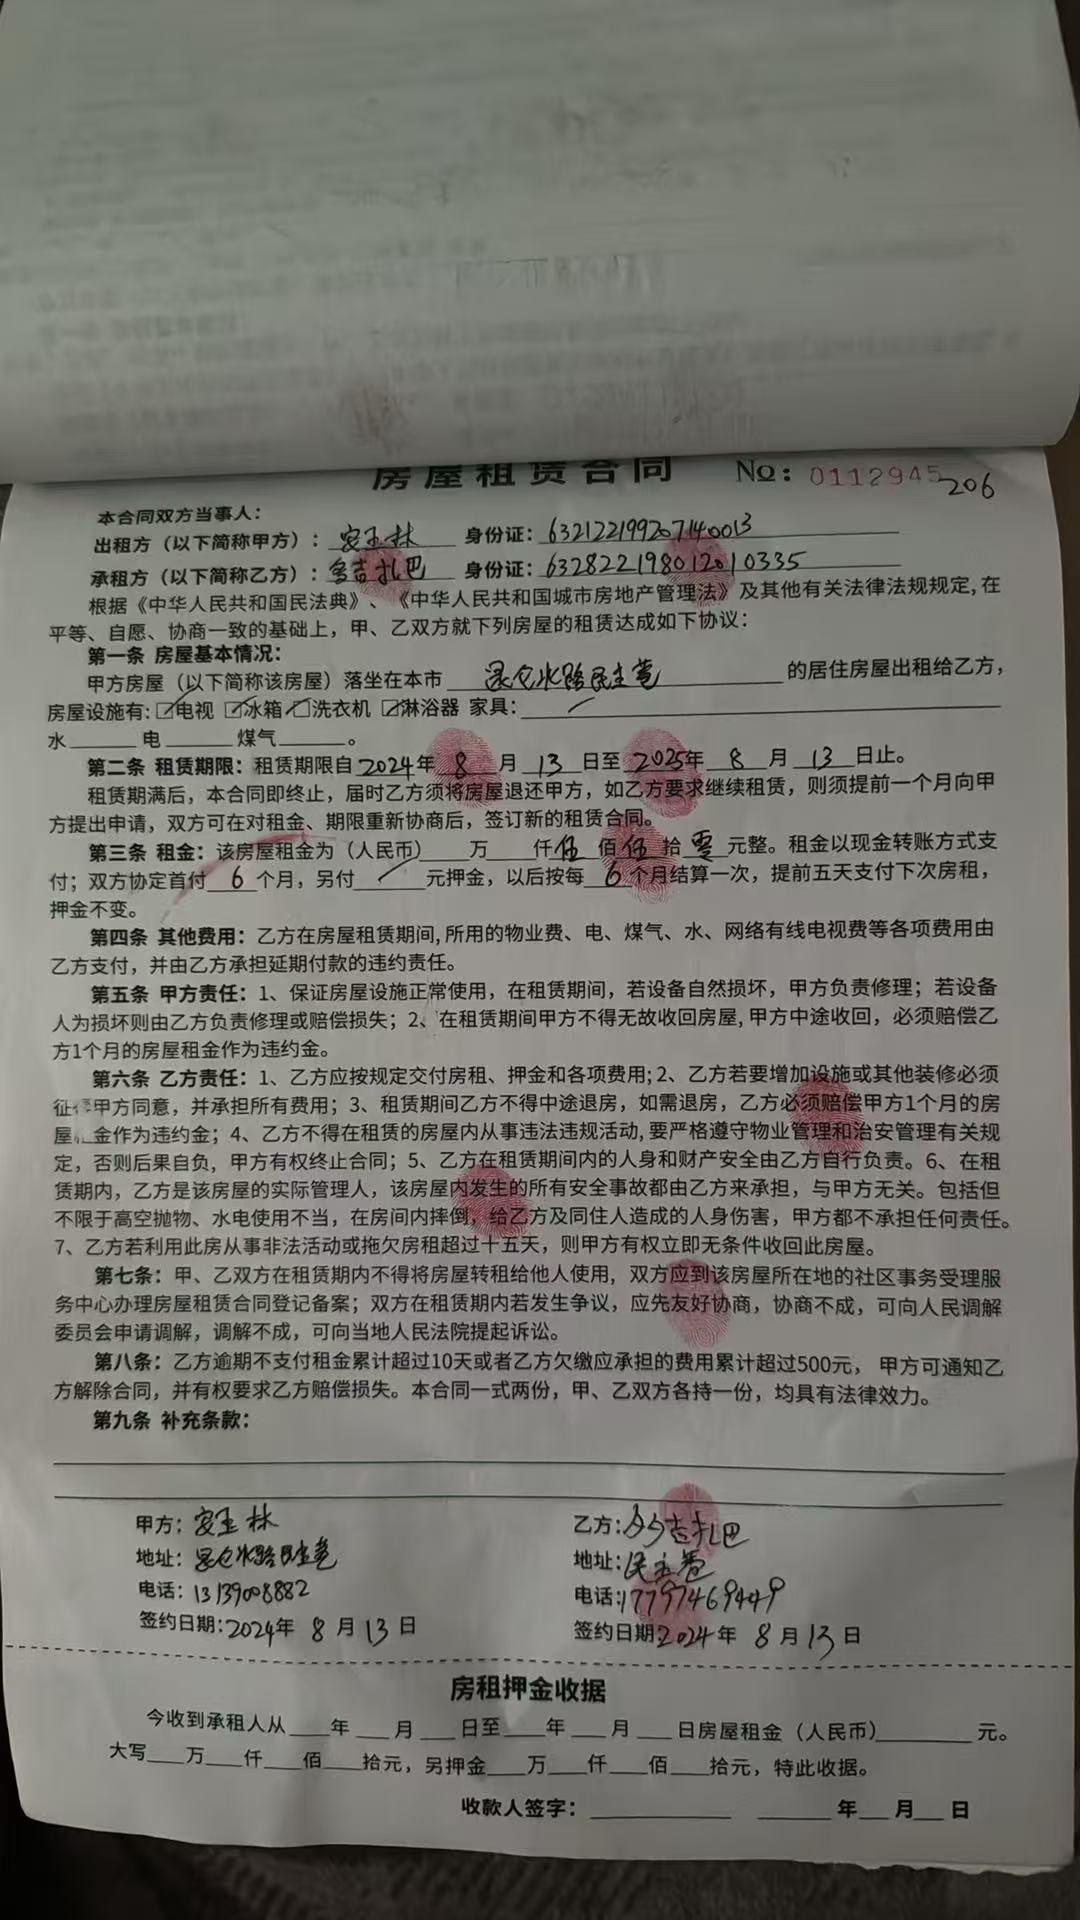 房屋租赁合同 №：0112945 206
本合同双方当事人：
出租方（以下简称甲方）：安玉林 身份证：632122199207140013
承租方（以下简称乙方）：多吉扎巴 身份证：632822198012010335
根据《中华人民共和国民法典》、《中华人民共和国城市房地产管理法》及其他有关法律法规规定,在
平等、自愿、协商一致的基础上，甲、乙双方就下列房屋的租赁达成如下协议：
第一条 房屋基本情况：
甲方房屋（以下简称该房屋）落坐在本市 昆仑水路民主巷 的居住房屋出租给乙方，
房屋设施有：☑电视 ☑冰箱 ☑洗衣机 ☑淋浴器 家具：
水____电____煤气____。
第二条 租赁期限：租赁期限自2024年8月13日至2025年8月13日止。
租赁期满后，本合同即终止，届时乙方须将房屋退还甲方，如乙方要求继续租赁，则须提前一个月向甲
方提出申请，双方可在对租金、期限重新协商后，签订新的租赁合同。
第三条 租金：该房屋租金为（人民币）____万____仟伍佰伍拾零元整。租金以现金转账方式支
付；双方协定首付6个月，另付____元押金，以后按每6个月结算一次，提前五天支付下次房租，
押金不变。
第四条 其他费用：乙方在房屋租赁期间,所用的物业费、电、煤气、水、网络有线电视费等各项费用由
乙方支付，并由乙方承担延期付款的违约责任。
第五条 甲方责任：1、保证房屋设施正常使用，在租赁期间，若设备自然损坏，甲方负责修理；若设备
人为损坏则由乙方负责修理或赔偿损失；2、在租赁期间甲方不得无故收回房屋,甲方中途收回，必须赔偿乙
方1个月的房屋租金作为违约金。
第六条 乙方责任：1、乙方应按规定交付房租、押金和各项费用;2、乙方若要增加设施或其他装修必须
征得甲方同意，并承担所有费用；3、租赁期间乙方不得中途退房，如需退房，乙方必须赔偿甲方1个月的房
屋租金作为违约金；4、乙方不得在租赁的房屋内从事违法违规活动,要严格遵守物业管理和治安管理有关规
定，否则后果自负，甲方有权终止合同；5、乙方在租赁期间内的人身和财产安全由乙方自行负责。6、在租
赁期内，乙方是该房屋的实际管理人，该房屋内发生的所有安全事故都由乙方来承担，与甲方无关。包括但
不限于高空抛物、水电使用不当，在房间内摔倒，给乙方及同住人造成的人身伤害，甲方都不承担任何责任。
7、乙方若利用此房从事非法活动或拖欠房租超过十五天，则甲方有权立即无条件收回此房屋。
第七条：甲、乙双方在租赁期内不得将房屋转租给他人使用，双方应到该房屋所在地的社区事务受理服
务中心办理房屋租赁合同登记备案；双方在租赁期内若发生争议，应先友好协商，协商不成，可向人民调解
委员会申请调解，调解不成，可向当地人民法院提起诉讼。
第八条：乙方逾期不支付租金累计超过10天或者乙方欠缴应承担的费用累计超过500元，甲方可通知乙
方解除合同，并有权要求乙方赔偿损失。本合同一式两份，甲、乙双方各持一份，均具有法律效力。
第九条 补充条款：
甲方：安玉林 乙方：多吉扎巴
地址：昆仑水路民主巷 地址：民主巷
电话：13139008882 电话：17797469449
签约日期：2024年8月13日 签约日期2024年8月13日
房租押金收据
今收到承租人从____年____月____日至____年____月____日房屋租金（人民币）________元。
大写____万____仟____佰____拾元，另押金____万____仟____佰____拾元，特此收据。
收款人签字：________ ____年____月____日